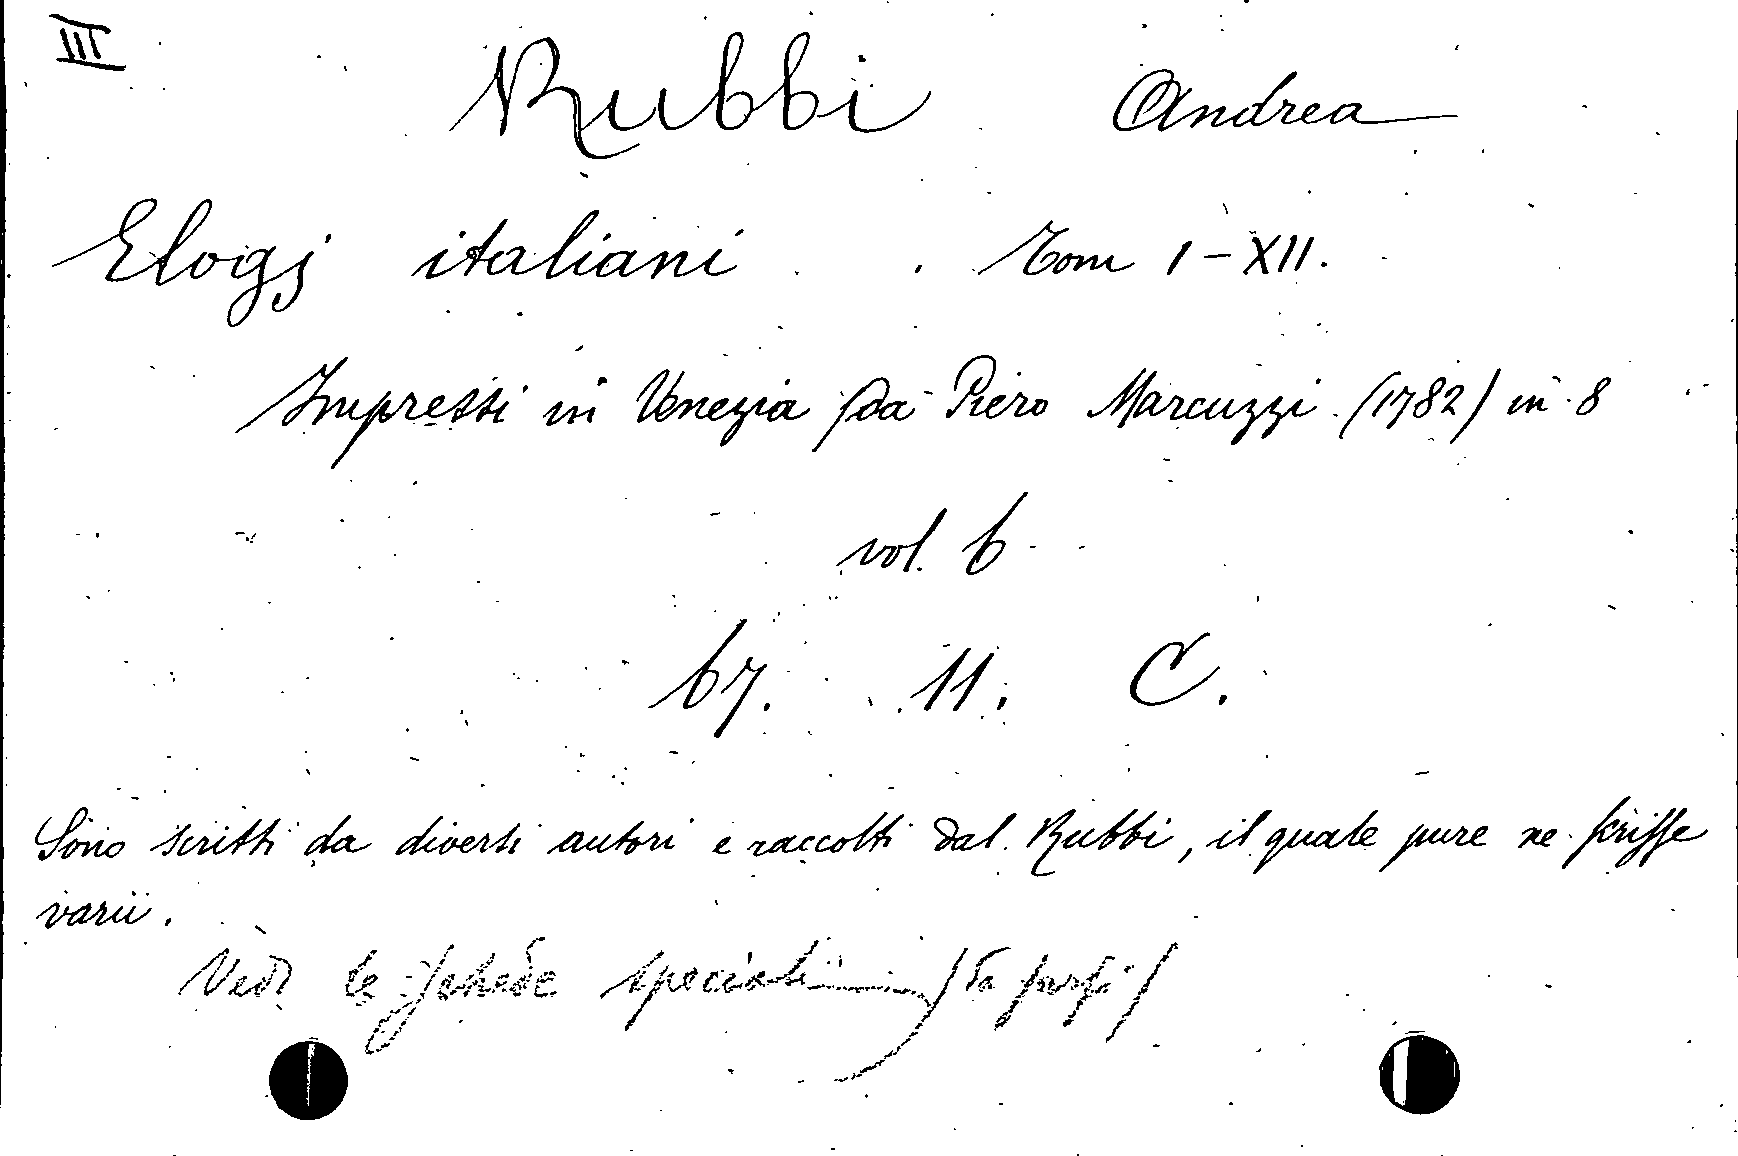 III
Rubbi Andrea
Elogj italiani. Tom I-XII.
Impressi in Venezia da Piero Marcuzzi (1782) in 8
vol. 6
67. 11. C.
Sono scritti da diversi autori e raccolti dal Rubbi, il quale pure ne scrisse
varii.
Vedi le schede speciali (da farsi)